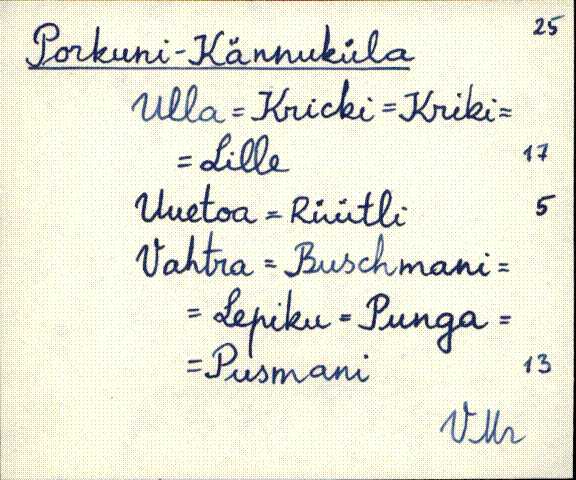 25
Porkuni-Kännuküla
Ulla = Kricki = Kriki =
= Lille 17
Uuetoa = Rüütli 5
Vahtra = Buschmani =
= Lepiku = Punga =
= Pusmani 13
VMr